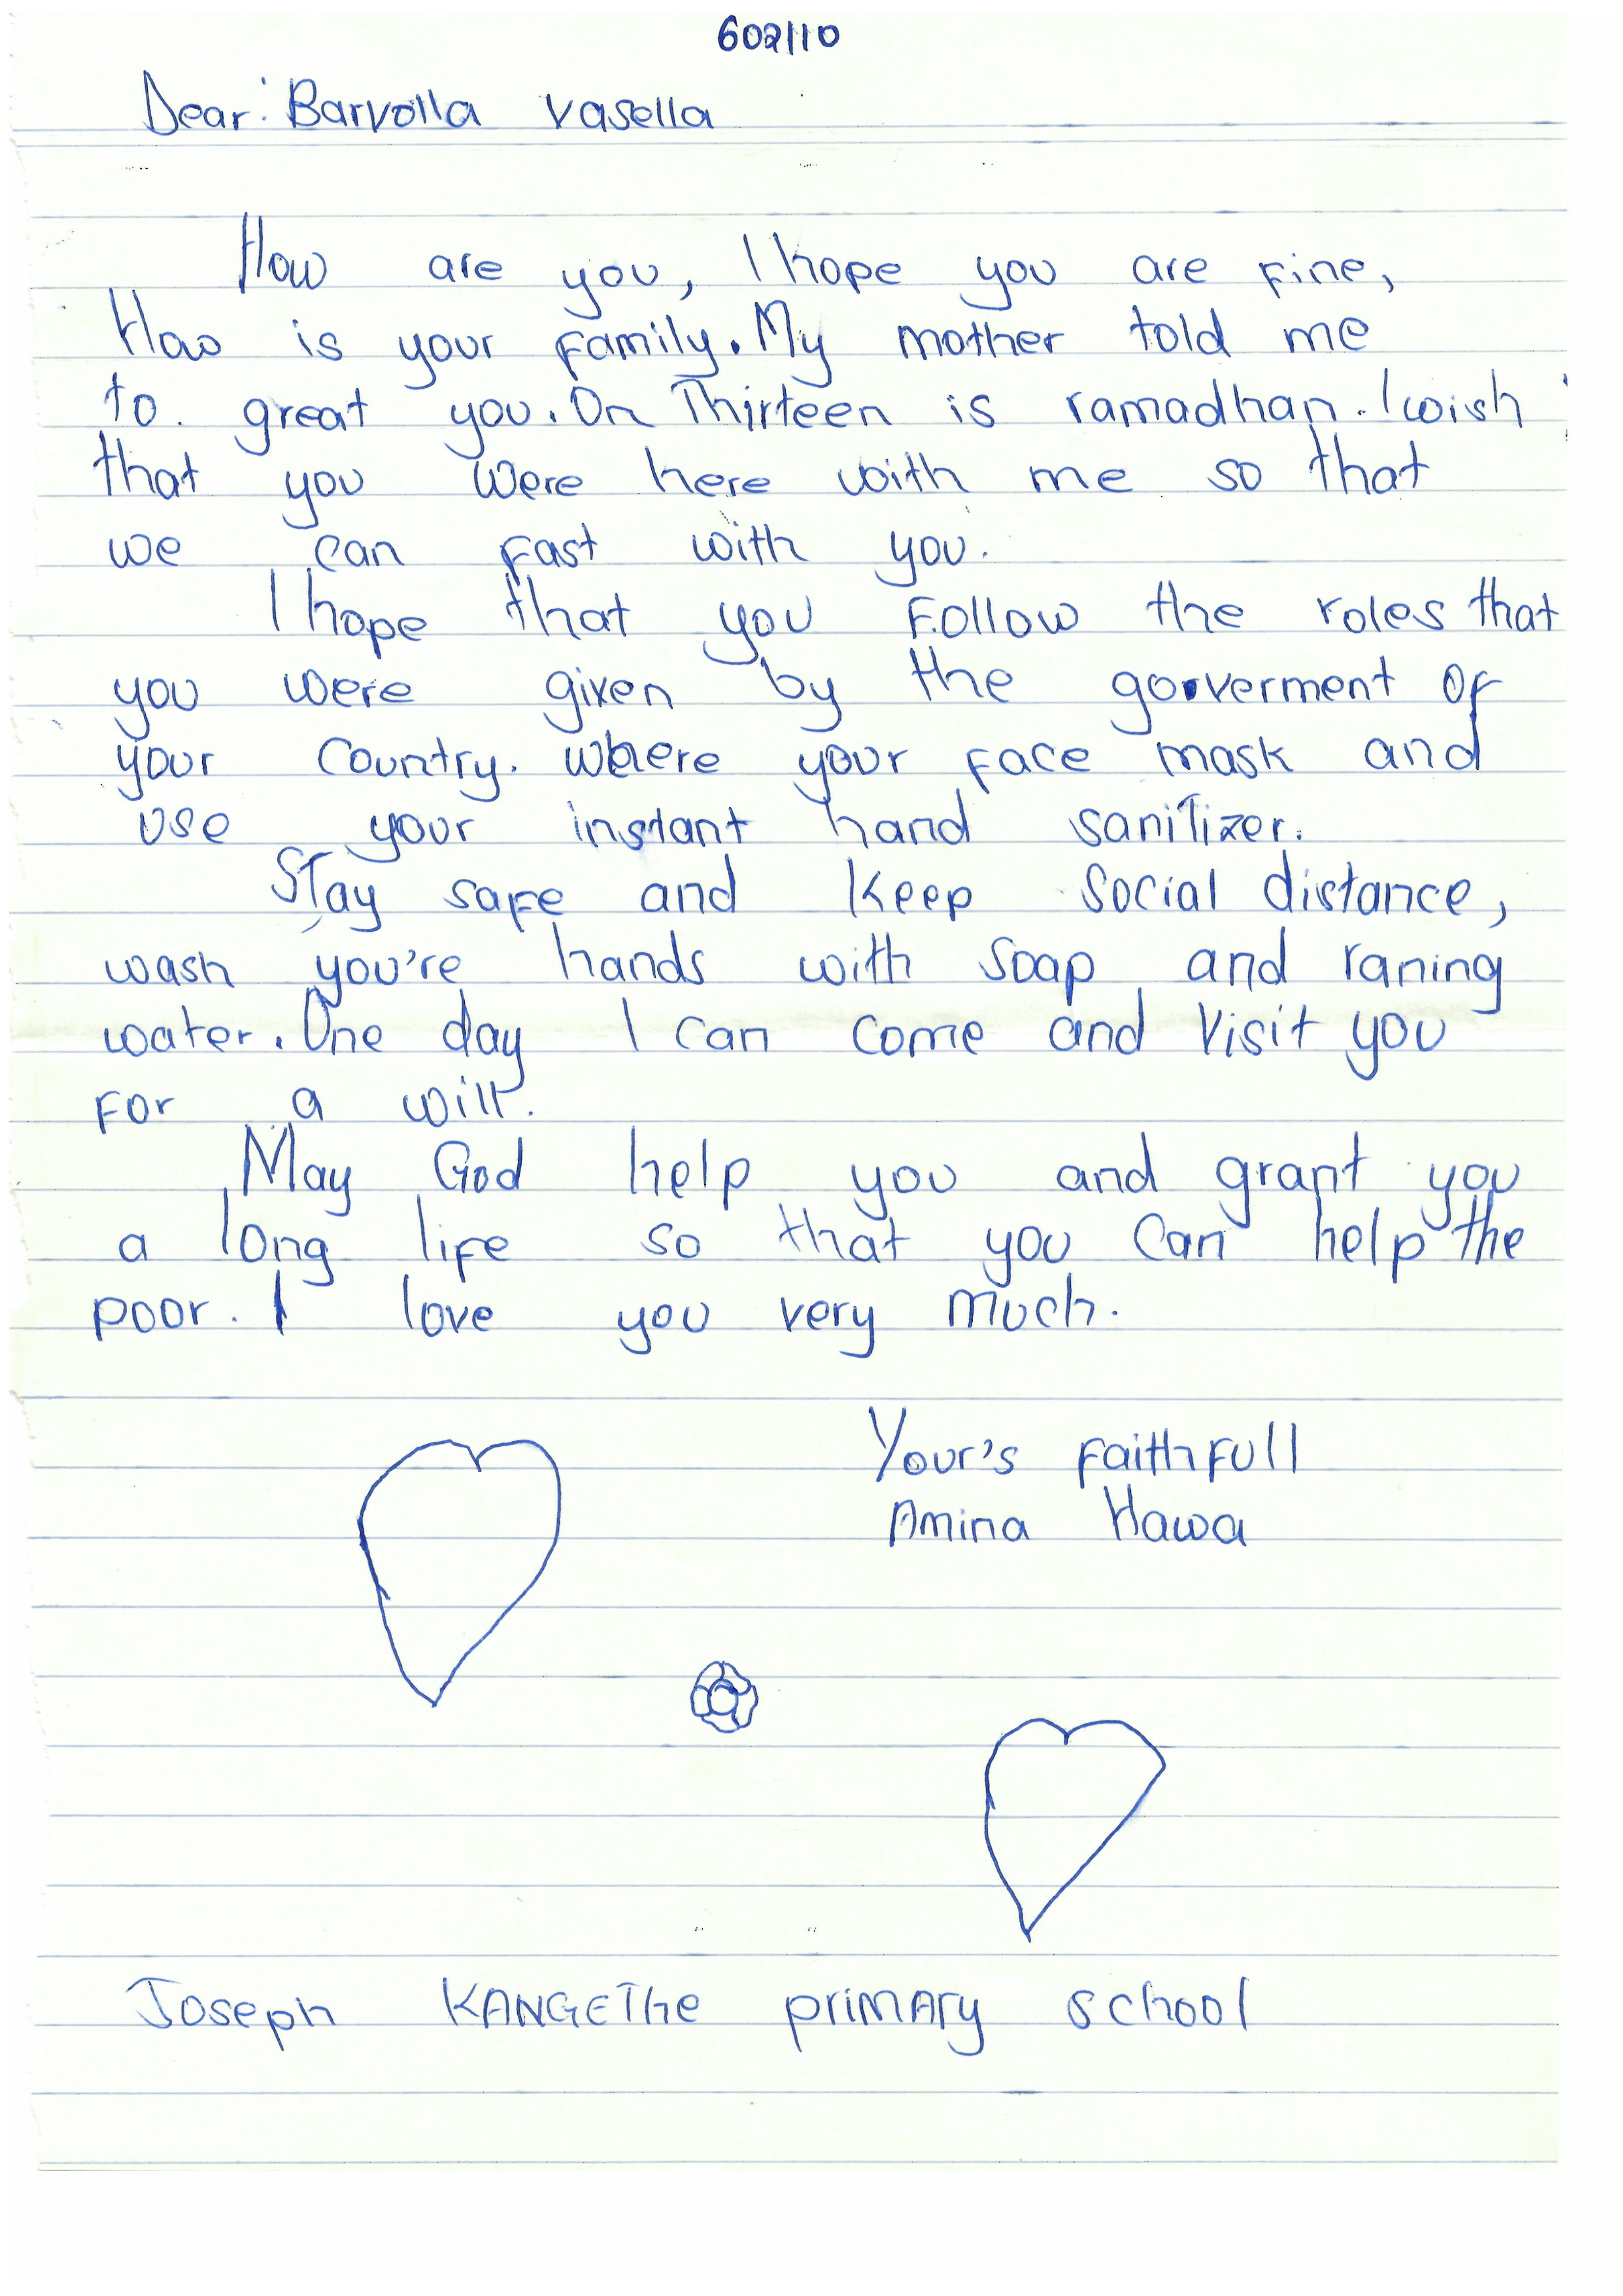 602/10
Dear: Barvolla Vasella
How are you, I hope you are fine,
How is your family. My mother told me
to. great you. On Thirteen is ramadhan. I wish
that you were here with me so that
we can fast with you.
I hope that you Follow the roles that
you were given by the gorverment of
your country. Where your face mask and
use your instant hand sanitizer.
Stay safe and keep social distance,
wash you're hands with soap and raning
water. One day I can come and visit you
for a will.
May God help you and grant you
a long life so that you can help the
poor. I love you very much.
Your's faithfull
Amina Hawa
Joseph KANGEThe primary school